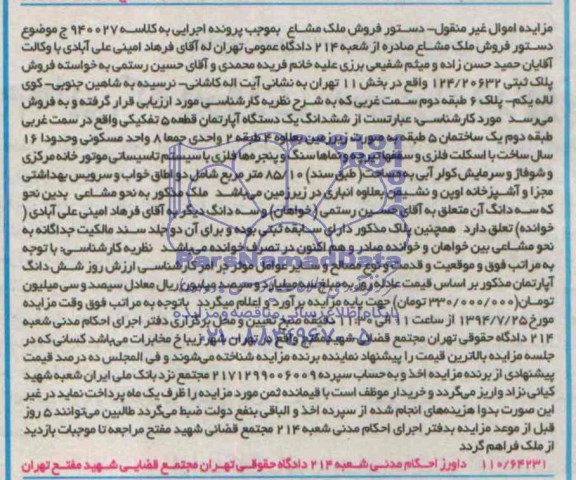 مزایده اموال غیر منقول- دستور فروش ملک مشاع بموجب پرونده اجرایی به کلاسه ۹۴۰۰۲۷ ج موضوع
دستور فروش ملک مشاع صادره از شعبه ۲۱۴ دادگاه عمومی تهران له آقای فرهاد امینی علی آبادی با وکالت
آقایان حمید حسن زاده و میثم شفیعی برزی علیه خانم فریده محمدی و آقای حسین رستمی به خواسته فروش
پلاک ثبتی ۱۲۴/۲۰۶۳۲ واقع در بخش ۱۱ تهران به نشانی آیت اله کاشانی- نرسیده به شاهین جنوبی- کوی
لاله یکم- پلاک ۶ طبقه دوم سمت غربی که به شرح نظریه کارشناسی مورد ارزیابی قرار گرفته و به فروش
می‌رسد مورد کارشناسی: عبارتست از ششدانگ یک دستگاه آپارتمان قطعه ۵ تفکیکی واقع در سمت غربی
طبقه دوم یک ساختمان ۵ طبقه به صورت زیر زمین بعلاوه ۴ طبقه ۲ واحدی جمعا ۸ واحد مسکونی وحدودا ۱۶
سال ساخت با اسکلت فلزی و سقفها تیرچه ونماها سنگ و پنجره‌ها فلزی با سیستم تاسیساتی موتور خانه مرکزی
و شوفاژ و سرمایش کولر آبی به مساحت (طبق سند) ۸۵/۱۰ متر مربع شامل دو اطاق خواب و سرویس بهداشتی
مجزا و آشپزخانه اوپن و نشیمن بعلاوه انباری در زیرزمین می‌باشد ملک مذکور به نحو مشاعی بدین نحو
که سه دانگ آن متعلق به آقای حسین رستمی (خواهان) و سه دانگ دیگر به آقای فرهاد امینی علی آبادی (
خوانده) تعلق دارد همچنین پلاک مذکور دارای سابقه ثبتی بوده و برای آن دو جلد سند مالکیت جداگانه به
نحو مشاعی بین خواهان و خوانده صادر و هم اکنون در تصرف خوانده می‌باشد نظریه کارشناسی: با توجه
به مراتب فوق و موقعیت و قدمت و نوع مصالح و سایر عوامل موثر در امر کارشناسی ارزش روز شش دانگ
آپارتمان مذکور بر اساس قیمت عادله روز به مبلغ سه میلیارد و سیصد میلیون ریال معادل سیصد و سی میلیون
تومان (۳۳۰/۰۰۰/۰۰۰ تومان) جهت پایه مزایده برآورد و اعلام میگردد باتوجه به مراتب فوق وقت مزایده
مورخ ۱۳۹۴/۷/۲۵ از ساعت ۱۱ الی ۱۱:۳۰ دقیقه صبح تعیین و محل برگزاری دفتر اجرای احکام مدنی شعبه
۲۱۴ دادگاه حقوقی تهران مجتمع قضایی شهید مفتح واقع در تهران شهرزیبا خ مخابرات می‌باشد کسانی که در
جلسه مزایده بالاترین قیمت را پیشنهاد نماینده برنده مزایده شناخته می‌شوند و فی المجلس ده درصد قیمت
پیشنهادی از برنده مزایده اخذ و به حساب سپرده ۲۱۷۱۲۹۹۰۰۶۰۰۹ مجتمع نزد بانک ملی ایران شعبه شهید
کیانی نژاد واریز می‌گردد و خریدار موظف است با قیمانده ثمن مورد مزایده را ظرف یک ماه پرداخت نماید در غیر
این صورت بدوا هزینه‌های انجام شده از سپرده اخذ و الباقی بنفع دولت ضبط می‌گردد طالبین می‌توانند ۵ روز
قبل از موعد مزایده بدفتر اجرای احکام مدنی شعبه ۲۱۴ مجتمع قضائی شهید مفتح مراجعه تا موجبات بازدید
از ملک فراهم گردد
۱۱۰/۶۴۲۳۱ داورز احکام مدنی شعبه ۲۱۴ دادگاه حقوقی تهران مجتمع قضایی شهید مفتح تهران
ParsNamadData
پایگاه اطلاع رسانی مناقصه و مزایده